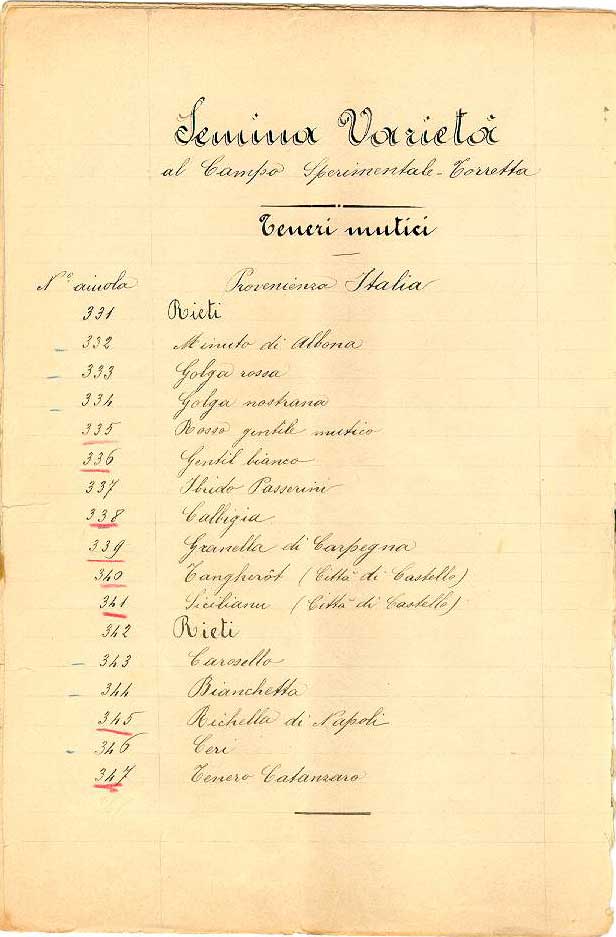 Semina Varietà
al Campo Sperimentale-Torretta
Teneri mutici
N.° aiuola Provenienza Italia
331 Rieti
332 Minuto di Albona
333 Golga rossa
334 Golga nostrana
335 Rosso gentile mutico
336 Gentil bianco
337 Ibrido Passerini
338 Calbigia
339 Granella di Carpegna
340 Tangheröt (Città di Castello)
341 Sicilianu (Città di Castello)
342 Rieti
343 Carosello
344 Bianchetta
345 Richella di Napoli
346 Ceri
347 Tenero Catanzaro